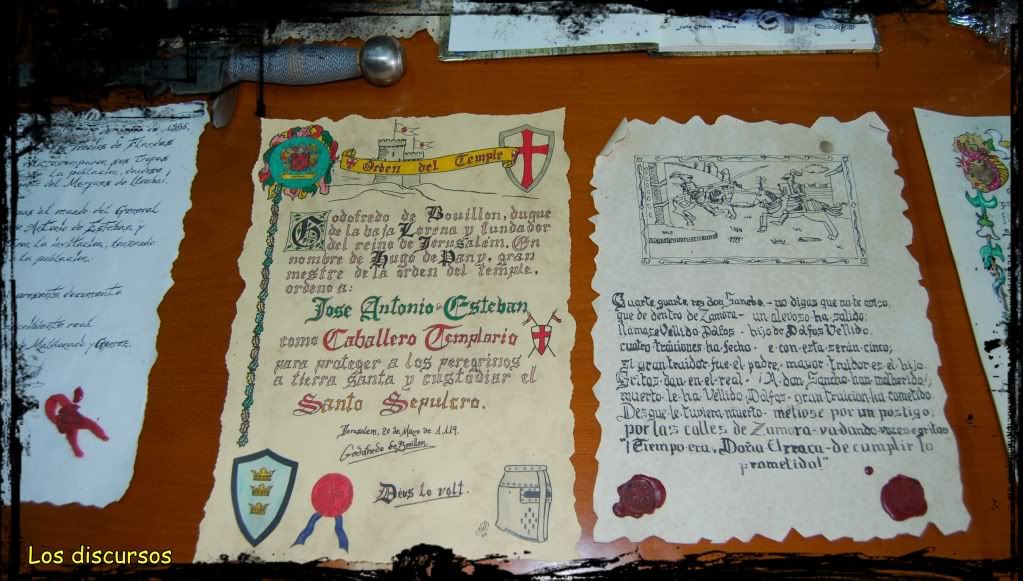 de 1566.
Tercios de Flandes
sus tropas
la poblacion,
del Marques de
mando del General
Antonio de Esteban, y
la invitacion,
la poblacion.
presente documento
real
Maldonado y Gomez.
Orden del Temple
Godofredo de Bouillon, duque
de la baja Lorena y fundador
del reino de Jerusalem. En
nombre de Hugo de Pany, gran
mestre de la orden del temple.
ordeno a:
Jose Antonio Esteban
como Caballero Templario
para proteger a los peregrinos
a tierra santa y custodiar el
Santo Sepulcro.
Jerusalem, 20 de Mayo de 1.119.
Godofredo de Bouillon
Deus lo volt.
Guarte, guarte, rey don Sancho, - no digas que no te aviso,
que de dentro de Zamora - un alevoso ha salido;
llamase Vellido Dolfos - hijo de Dolfos Vellido,
cuatro traiciones ha fecho - e con esta seran cinco;
si gran traidor fue el padre, mayor traidor es el hijo.
Gritos dan en el real. ¡A don Sancho han malherido!;
muerto le ha Vellido Dolfos - gran traicion ha cometido.
Desque le tuviera muerto - metiose por un postigo;
por las calles de Zamora - va dando voces e gritos
"¡Tiempo era, Doña Urraca - de cumplir lo
prometido!"
Los discursos